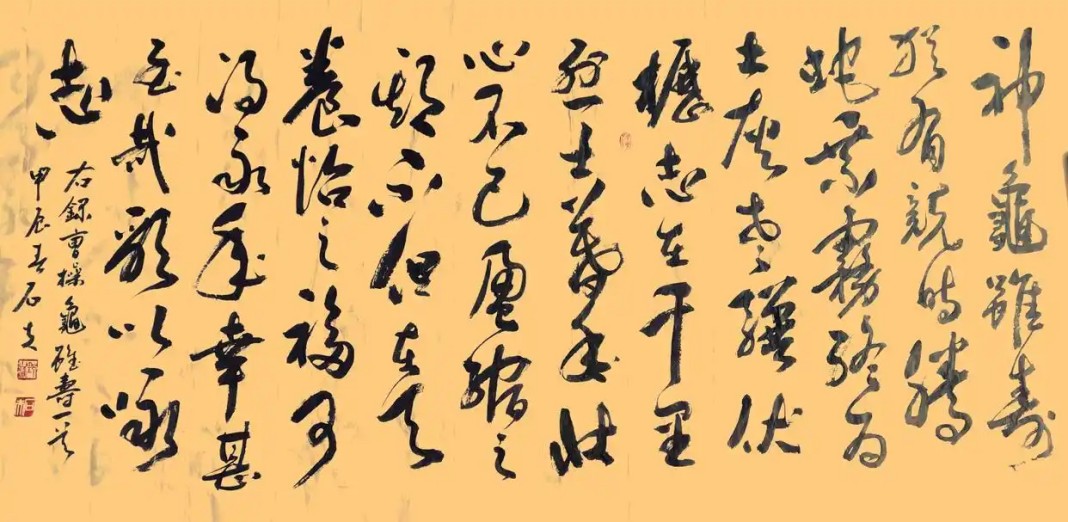 神龜雖壽
猶有競時騰
蛇乘霧終為
土灰老驥伏
櫪志在千里
烈士暮年壯
心不已盈縮之
期不但在天
養怡之福可
得永年幸甚
至哉歌以詠
志
右錄曹操龜雖壽一首
甲辰春石